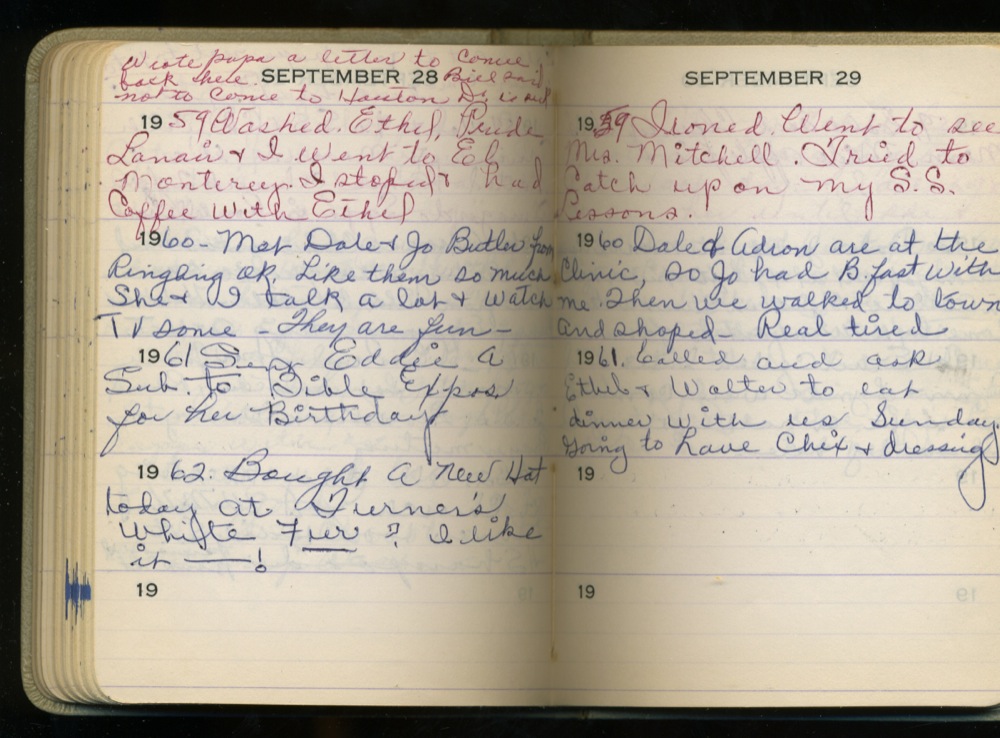 Wrote papa a letter to come
back here. Bill said
SEPTEMBER 28
not to come to Houston Dr. is out
1959 Washed. Ethel, Prude
Lanair & I went to El
Monterey. I stoped & had
Coffee with Ethel
1960 - Met Dale & Jo Butler from
Ringling ok. Like them so much
She & I talk a lot & watch
TV some - They are fun -
1961 Eddie a
Sub. to Bible Expos
for her Birthday
1962. Bought a new Hat
today at Turner's
Whitte Fur ? I like
it — !
19
SEPTEMBER 29
1959 Ironed. Went to see
Mrs. Mitchell. Tried to
Catch up on my S.S.
Lessons.
1960 Dale & Adron are at the
Clinic, so Jo had B.fast with
me. Then we walked to town
and shoped - Real tired
1961. Called and ask
Ethel & Walter to eat
dinner with us Sunday
Going to have Chix & dressing
19
19